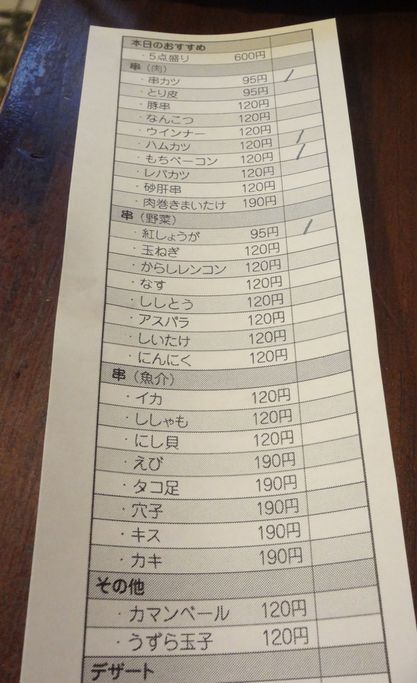 本日のおすすめ
・5点盛り 600円
串（肉）
・串カツ 95円
・とり皮 95円
・豚串 120円
・なんこつ 120円
・ウインナー 120円
・ハムカツ 120円
・もちベーコン 120円
・レバカツ 120円
・砂肝串 120円
・肉巻きまいたけ 190円
串（野菜）
・紅しょうが 95円
・玉ねぎ 120円
・からしレンコン 120円
・なす 120円
・ししとう 120円
・アスパラ 120円
・しいたけ 120円
・にんにく 120円
串（魚介）
・イカ 120円
・ししゃも 120円
・にし貝 120円
・えび 190円
・タコ足 190円
・穴子 190円
・キス 190円
・カキ 190円
その他
・カマンベール 120円
・うずら玉子 120円
デザート